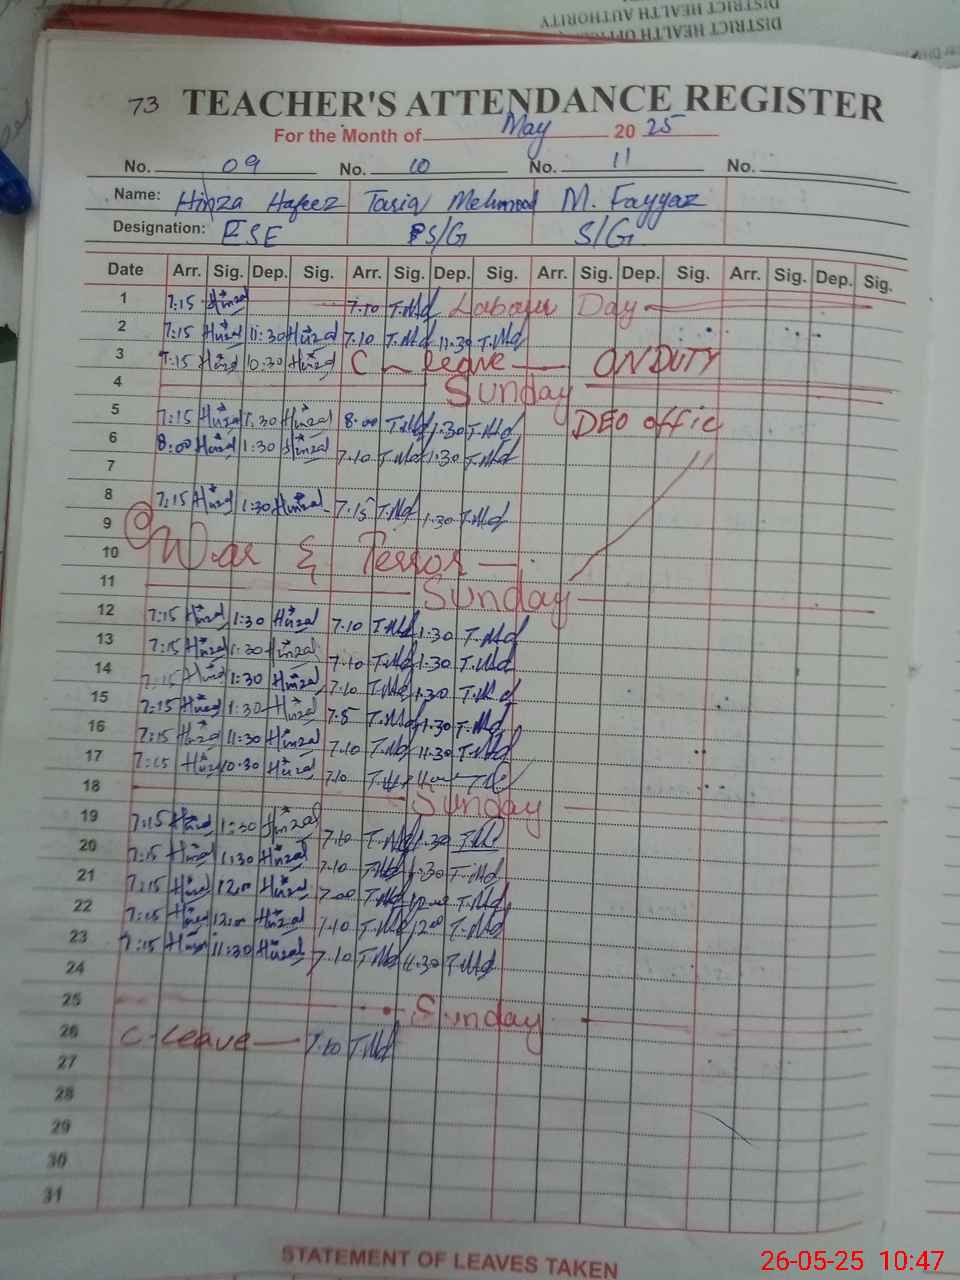 DISTRICT HEALTH AUTHORITY
DISTRICT HEALTH
73 TEACHER'S ATTENDANCE REGISTER
For the Month of May 2025
No. 09 No. 10 No. 11 No.
Name: Hinza Hafeez Tariq Mehmood M. Fayyaz
Designation: ESE S/G S/G
Date Arr. Sig. Dep. Sig. Arr. Sig. Dep. Sig. Arr. Sig. Dep. Sig. Arr. Sig. Dep. Sig.
1 7:15 Hinza 7.10 T.Md Labour Day
2 7:15 Hinza 11:30 Hinza 7.10 T.Md 11.30 T.Md
3 7:15 Hinza 10:30 Hinza C leave ON DUTY
4 Sunday
5 7:15 Hinza 1:30 Hinza 8.00 T.Md 1.30 T.Md DEO office
6 8:00 Hinza 1:30 Hinza 7.10 T.Md 1.30 T.Md
7
8 7:15 Hinza 1:30 Hinza 7.15 T.Md 1.30 T.Md
9
10 War & Terror
11 Sunday
12 7:15 Hinza 1:30 Hinza 7.10 T.Md 1.30 T.Md
13 7:15 Hinza 1:30 Hinza 7.10 T.Md 1.30 T.Md
14 7:15 Hinza 1:30 Hinza 7.10 T.Md 1.30 T.Md
15 7:15 Hinza 1:30 Hinza 7.5 T.Md 1.30 T.Md
16 7:15 Hinza 11:30 Hinza 7.10 T.Md 11.30 T.Md
17 7:15 Hinza 10:30 Hinza 7.10
18 Sunday
19 7:15 Hinza 1:30 Hinza 7.10 T.Md 1.30 T.Md
20 7:15 Hinza 1:30 Hinza 7.10 T.Md 1.30 T.Md
21 7:15 Hinza 12:00 Hinza 7.00 T.Md 12.00 T.Md
22 7:15 Hinza 12:00 Hinza 7.10 T.Md 12.00 T.Md
23 7:15 Hinza 11:30 Hinza 7.10 T.Md 11.30 T.Md
24
25 Sunday
26 C-leave 7.10 T.Md
27
28
29
30
31
STATEMENT OF LEAVES TAKEN
26-05-25 10:47